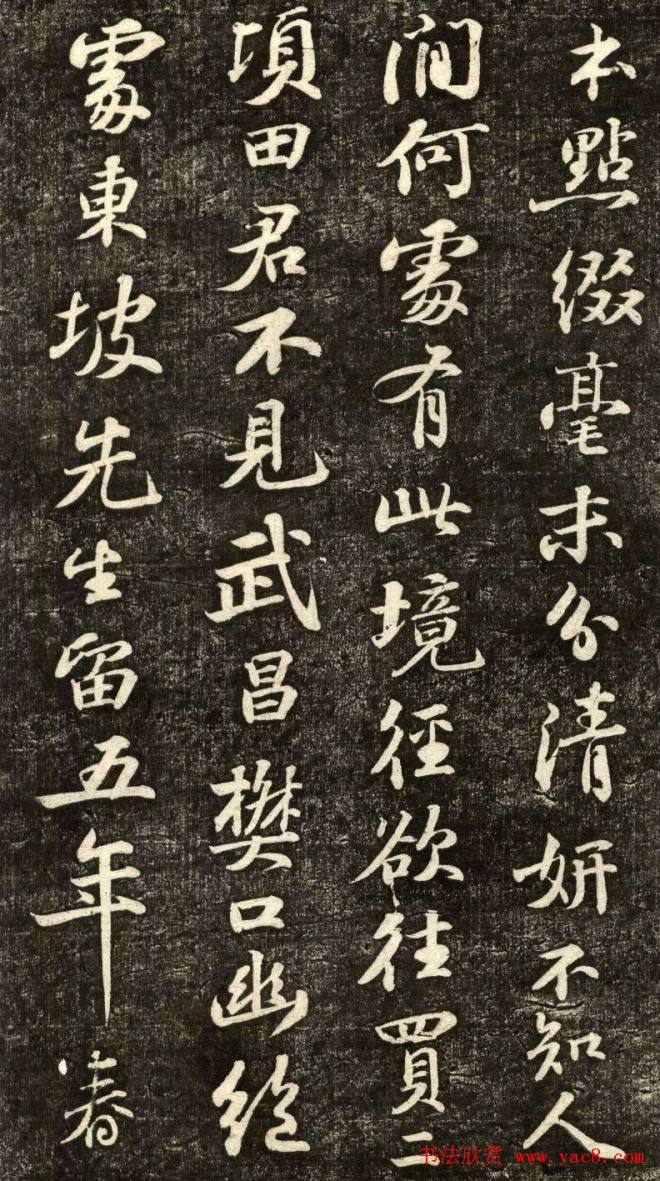 本點綴毫末分清妍不知人
間何處有此境徑欲往買二
頃田君不見武昌樊口幽絕
處東坡先生留五年春
书法欣赏 www.yac8.com